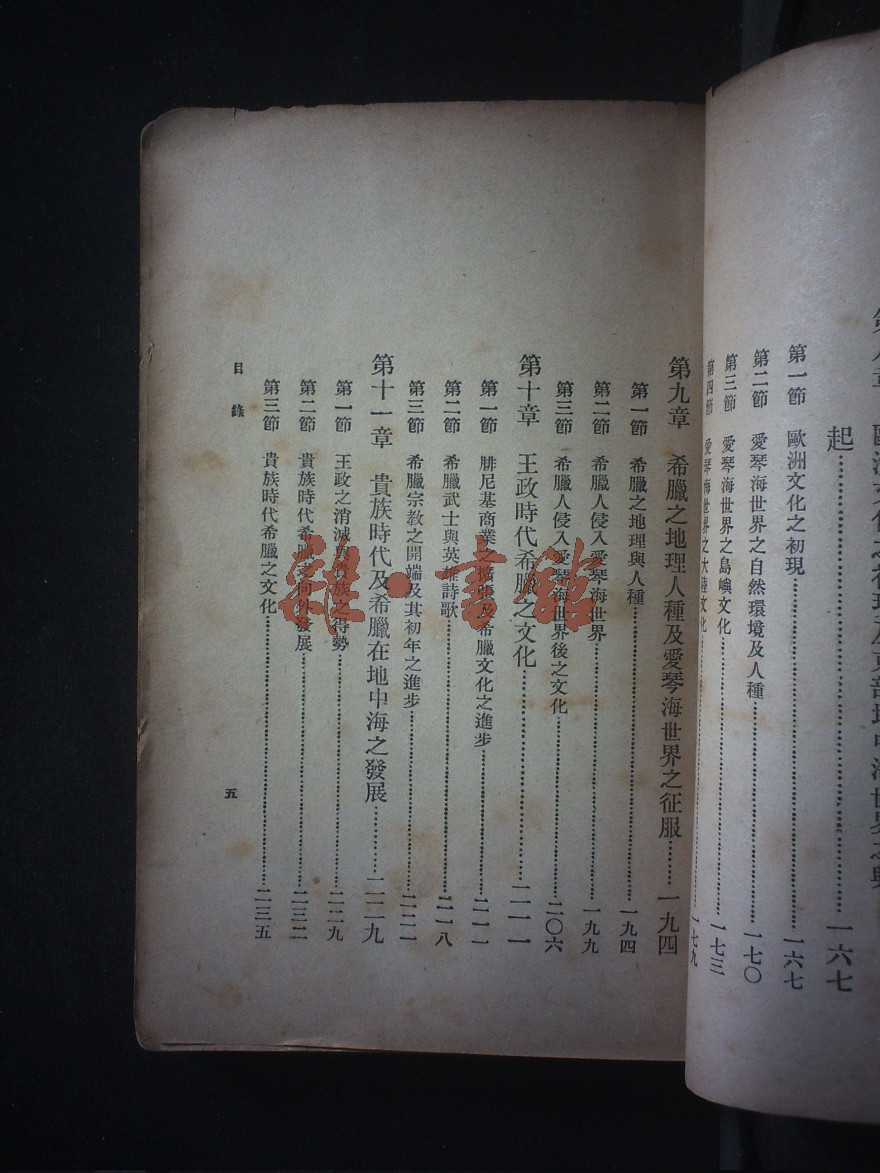 起……一六七
第一節 歐洲文化之初現……一六七
第二節 愛琴海世界之自然環境及人種……一七〇
第三節 愛琴海世界之島嶼文化……一七三
第四節 愛琴海世界之大陸文化……一七九
第九章 希臘之地理人種及愛琴海世界之征服……一九四
第一節 希臘之地理與人種……一九四
第二節 希臘人侵入愛琴海世界……一九九
第三節 希臘人侵入愛琴海世界後之文化……二〇六
第十章 王政時代希臘之文化……二一一
第一節 腓尼基商業之擴張及希臘文化之進步……二一一
第二節 希臘武士與英雄詩歌……二一八
第三節 希臘宗教之開端及其初年之進步……二二一
第十一章 貴族時代及希臘在地中海之發展……二二九
第一節 王政之消滅與貴族之得勢……二二九
第二節 貴族時代希臘之向外發展……二三二
第三節 貴族時代希臘之文化……二三五
目錄
五
雜·書館